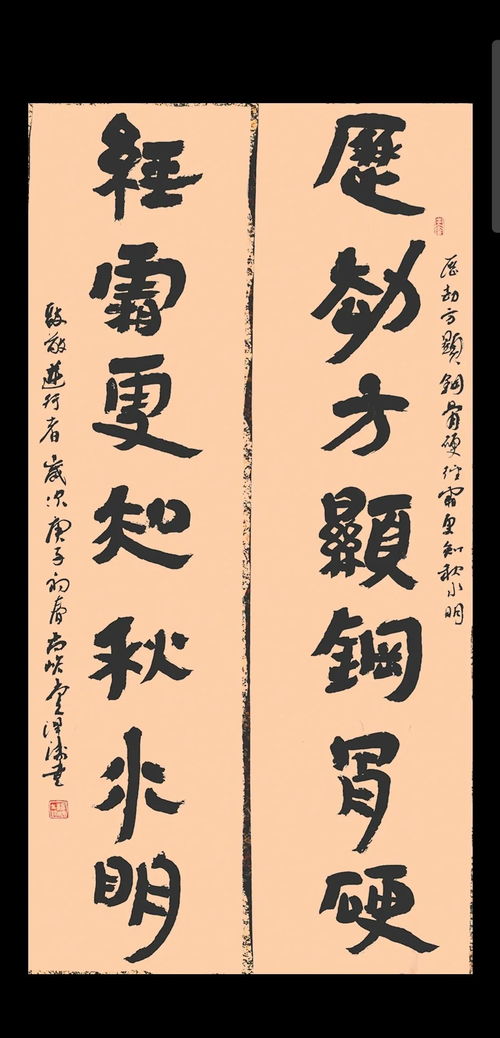 歷劫方顯鋼骨硬
經霜更知秋水明
歷劫方顯鋼骨硬經霜更知秋水明
致敬逆行者歲次庚子初春